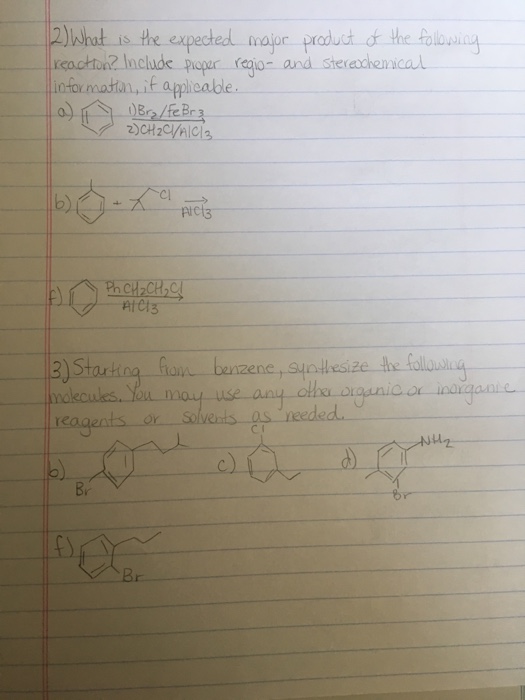 2) What is the expected major product of the following
reaction? Include proper regio- and stereochemical
information, if applicable.
a) 1) Br2/FeBr3
2) CH2Cl/AlCl3
b) + Cl
AlCl3
f) PhCH2CH2Cl
AlCl3
3) Starting from benzene, synthesize the following
molecules. You may use any other organic or inorganic
reagents or solvents as needed.
b) Br
c) Cl
d) NH2
Br
f) Br